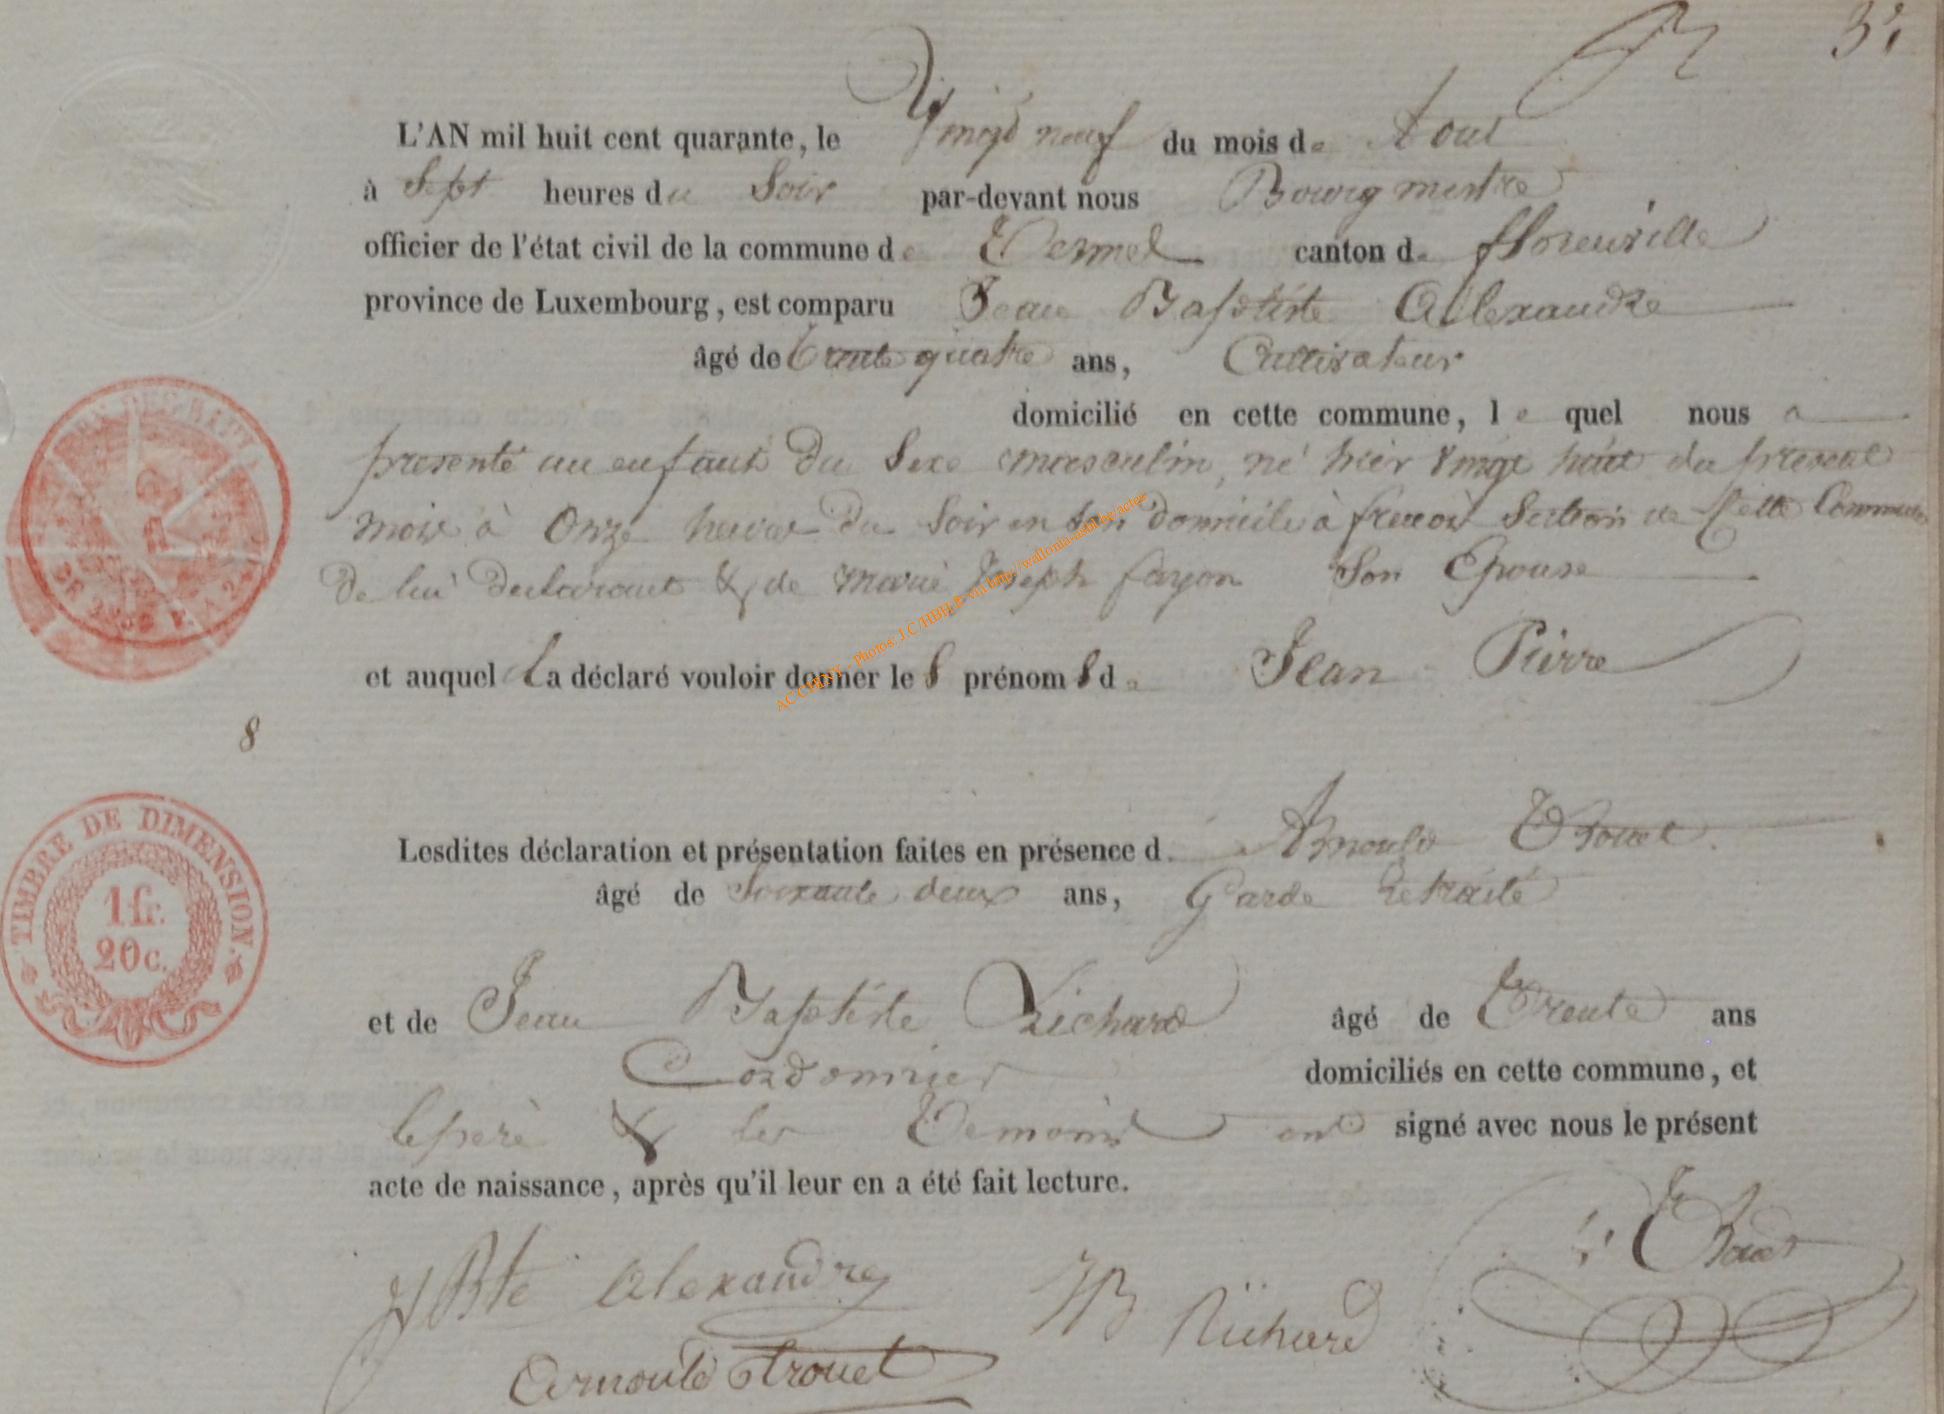 35
L'AN mil huit cent quarante, le Vingt neuf du mois de Aout
à Sept heures du Soir par-devant nous Bourgmestre
officier de l'état civil de la commune de Termes canton de florenville
province de Luxembourg, est comparu Jean Baptiste Allexandre
âgé de trente quatre ans, Cultivateur
domicilié en cette commune, le quel nous a
presenté un enfant du Sexe masculin, né hier vingt huit du present
mois à Onze heures du Soir en Son domicile à frenois Section de Cette Commune
De lui Declarant & de marie Joseph fayon Son Epouse
et auquel il a déclaré vouloir donner les prénoms de Jean Pierre
8
Lesdites déclaration et présentation faites en présence d. Arnould Trouet
âgé de Soixante deux ans, Garde retraité
et de Jean Baptiste Richard âgé de Trente ans
Cordonnier domiciliés en cette commune, et
le pere & les Temoins ont signé avec nous le présent
acte de naissance, après qu'il leur en a été fait lecture.
J Bte Alexandre JB Richard
Arnould trouet
TIMBRE DE DIMENSION.
1 fr.
20c.